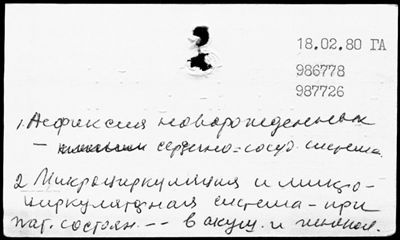 18.02.80 ГА
986778
987726
1. Асфиксия новорожденных
— сердечно=сосуд. система
2. Микроциркуляция и микро-
циркуляторная система - при
пат. состоян. -- в акуш. и гинекол.